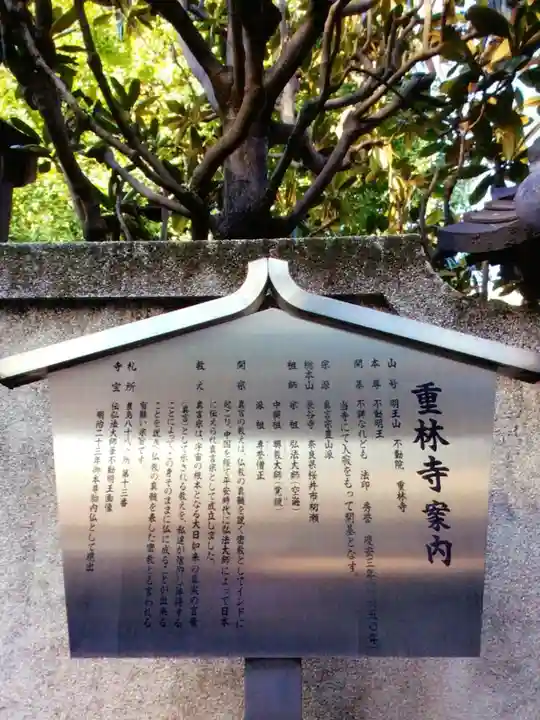 重林寺案内
山号 明王山 不動院 重林寺
本尊 不動明王
開基 不詳なれども 法印 秀誉 慶安三年
当寺にて入寂をもって開基となす。
宗派 真言宗豊山派
総本山 長谷寺 奈良県桜井市初瀬
祖師 宗祖 弘法大師(空海)
中興祖 興教大師(覚鑁)
派祖 専誉僧正
開宗 真言の教えは、仏教の真髄を説く密教としてインドに
起こり、中国を経て平安時代に弘法大師によって日本
に伝えられ真言宗として成立しました。
教え 真言宗は宇宙の根本となる大日如来の真実の言葉
(真言)として示される教えを、私達が信仰し
ことによって、この身そのままに仏に成ることが出来る
ことを説く、仏教の真髄を表した密教とも言われる
有難い
札所 豊島八十八ヶ所 第十三番
寺宝 伝弘法大師筆不動明王画像
明治二十三年御本尊胎内仏として現出